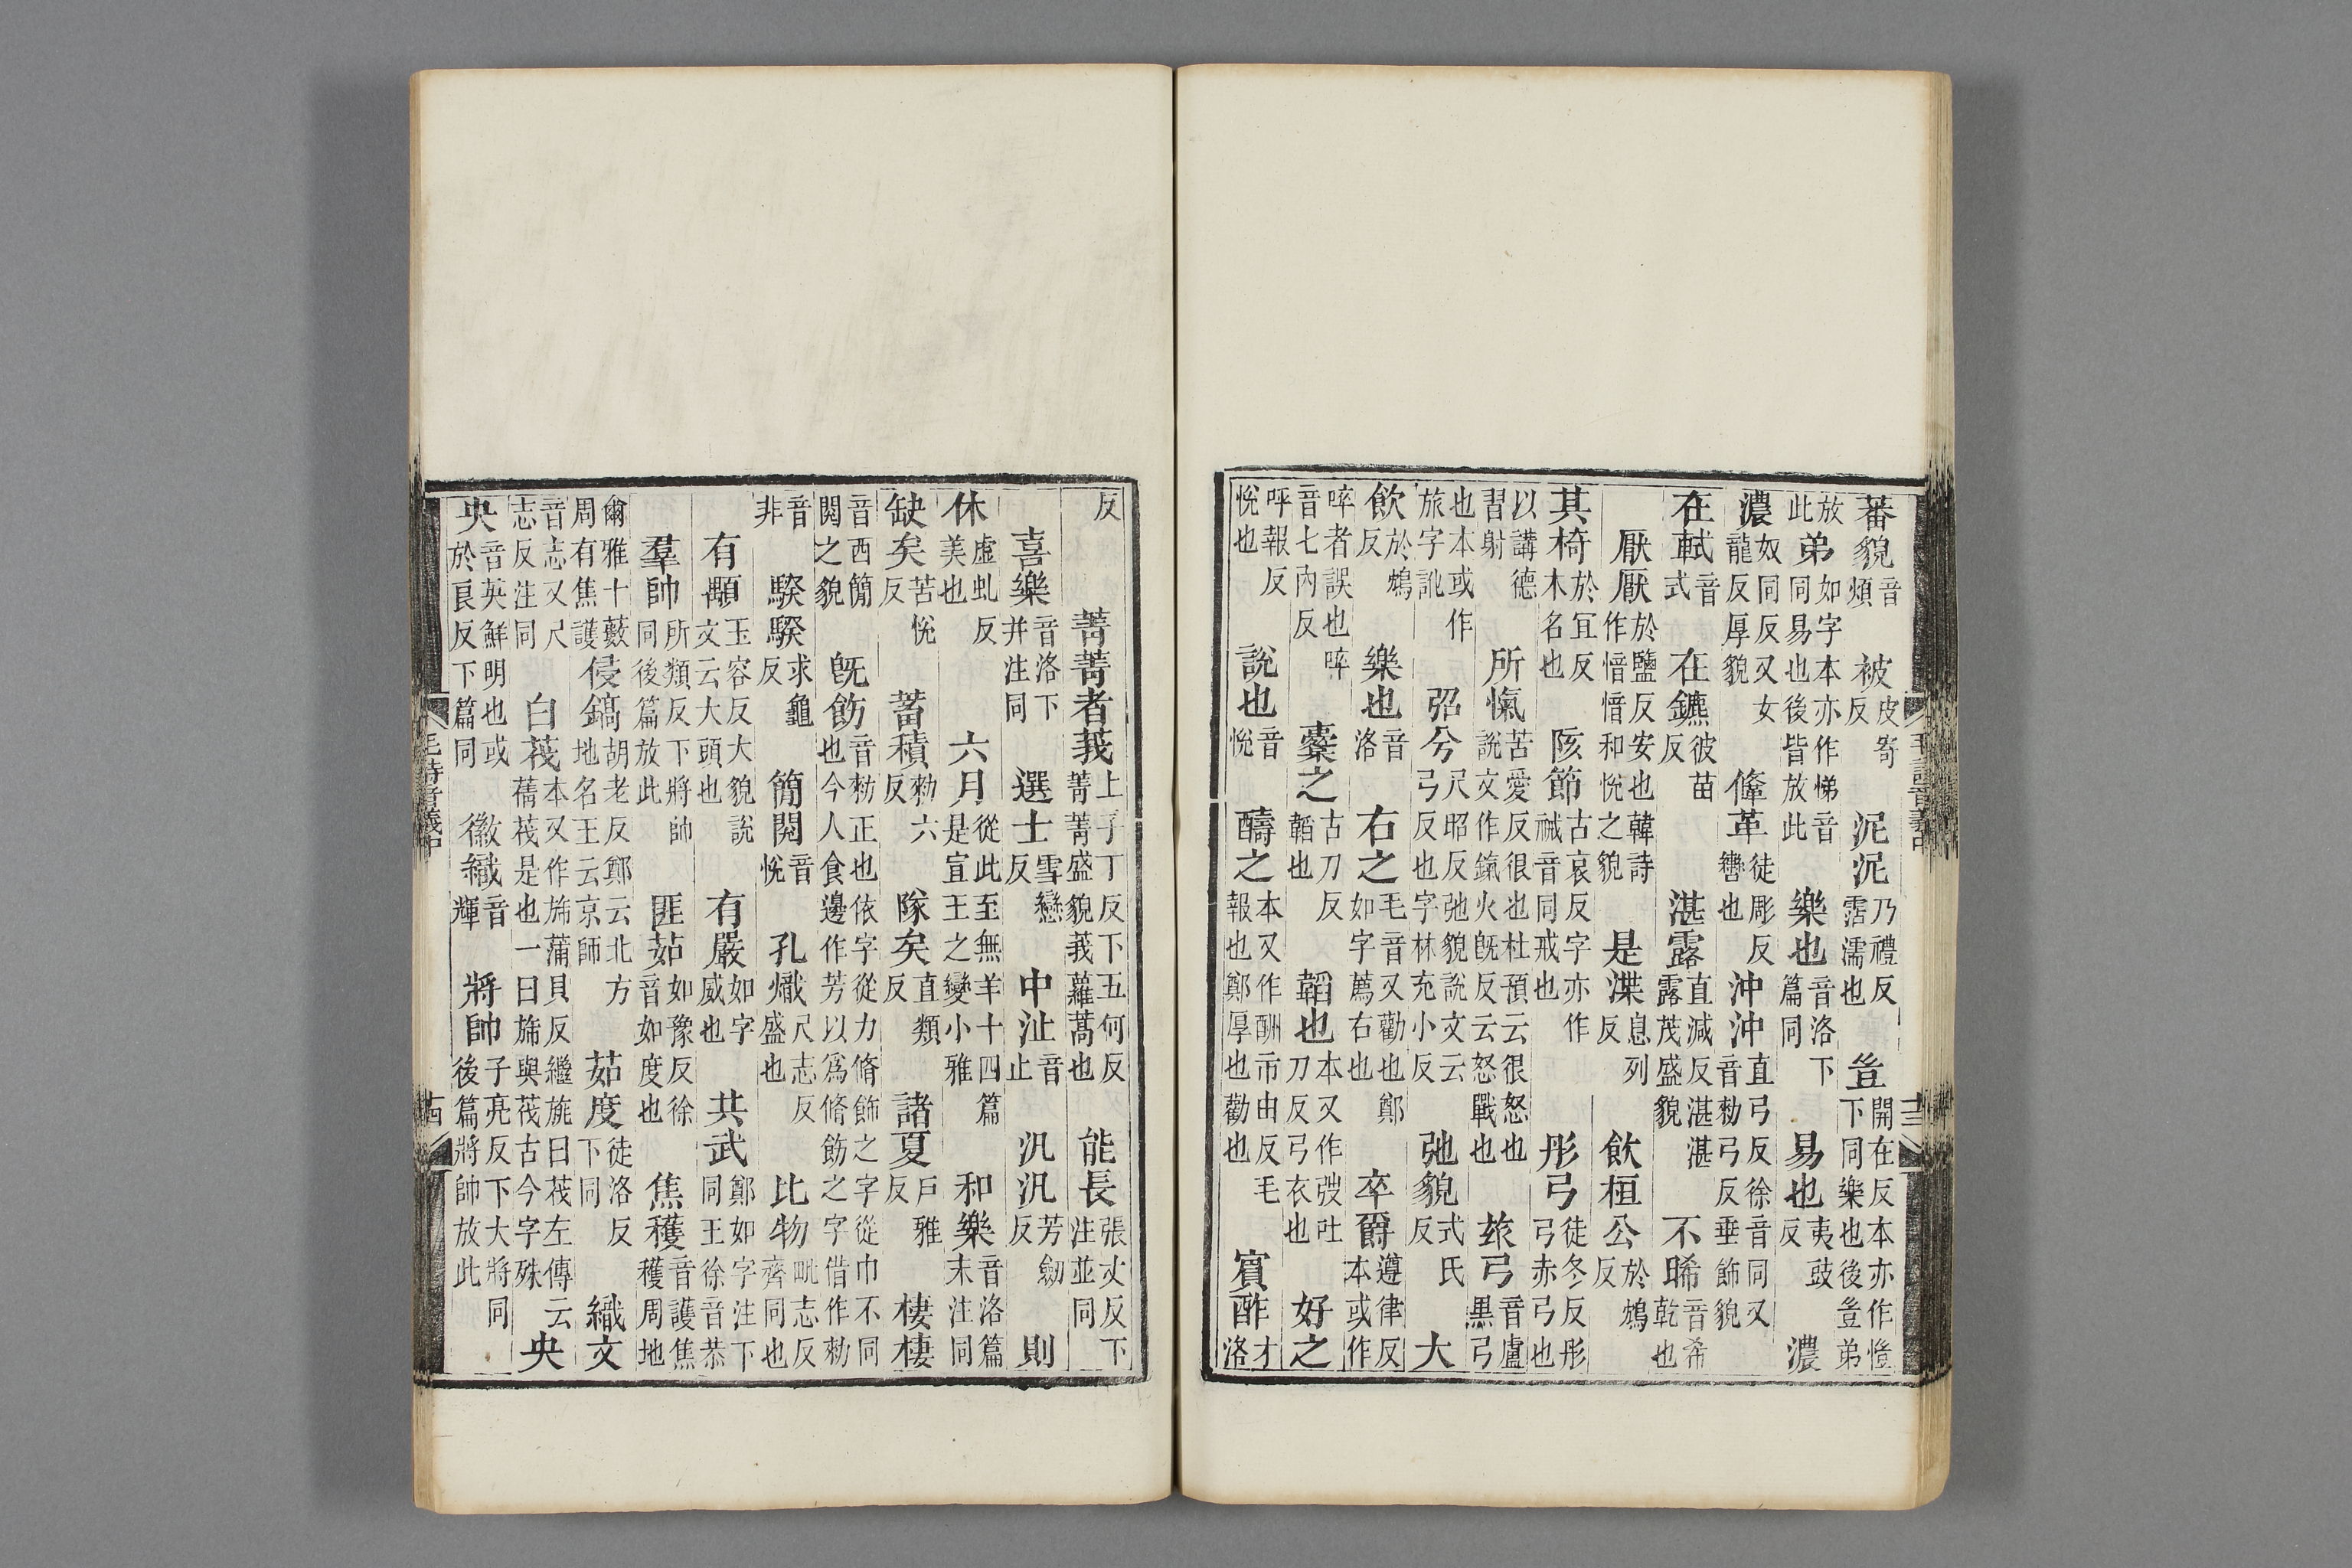 蕃貌音煩被皮寄反泥泥乃禮反霑濡也豈開在反本亦作愷下同樂也後豈弟
放此弟如字本亦作悌音同易也後皆放此樂也音洛下篇同易也夷豉反濃
濃奴同反又女龍反厚貌鞗革徒彫反轡也沖沖直弓反徐音同又音勑弓反垂飾貌
在軾音式在鑣彼苗反湛露直減反湛湛露茂盛貌不晞音希乾也
厭厭於鹽反安也韓詩作愔愔和悅之貌是渫息列反飲桓公於鴆反
其椅於宜反木名也陔節古哀反字亦作祴音同戒也彤弓徒冬反彤弓赤弓也
以講德習射所愾苦愛反很也杜預云很怒也說文作鎎火旣反云怒戰也玈弓音盧黑弓
也本或作旅字訛弨兮尺昭反弛貌說文云弓反也字林充小反弛貌式氏反大
飲於鴆反樂也音洛右之毛音又勸也鄭如字薦右也卒爵遵律反本或作
啐者誤也啐音七內反櫜之古刀反韜也韜也本又作弢吐刀反弓衣也好之
呼報反悅也說也音悅醻之本又作酬市由反毛報也鄭厚也勸也賓酢才洛
毛詩音義中
十三
反
菁菁者莪上子丁反下五何反菁菁盛貌莪蘿蒿也能長張丈反下注並同
喜樂音洛下并注同選士雪戀反中沚音止汎汎芳劒反則
休虛虬反美也六月從此至無羊十四篇是宣王之變小雅和樂音洛篇末注同
缺矣苦悅反蓄積勑六反隊矣直類反諸夏戶雅反棲棲
音西簡閱之貌旣飭音勑正也依字從力脩飾之字從巾不同也今人食邊作芳以爲脩飭之字借作勑
音非騤騤求龜反簡閱音悅孔熾尺志反盛也比物毗志反齊同也
有顒玉容反大貌說文云大頭也有嚴如字威也共武鄭如字注下同王徐音恭
羣帥所類反下將帥同後篇放此匪茹如豫反徐音如度也焦穫音護焦穫周地
爾雅十藪周有焦護侵鎬胡老反鄭云北方地名王云京師茹度徒洛反下同織文
音志又尺志反注同白茷本又作旆蒲貝反繼旐曰茷左傳云蒨茷是也一曰旆與茷古今字殊央
央音英鮮明也或於良反下篇同徽織音輝將帥子亮反下大將同後篇將帥放此
毛詩音義中
十四